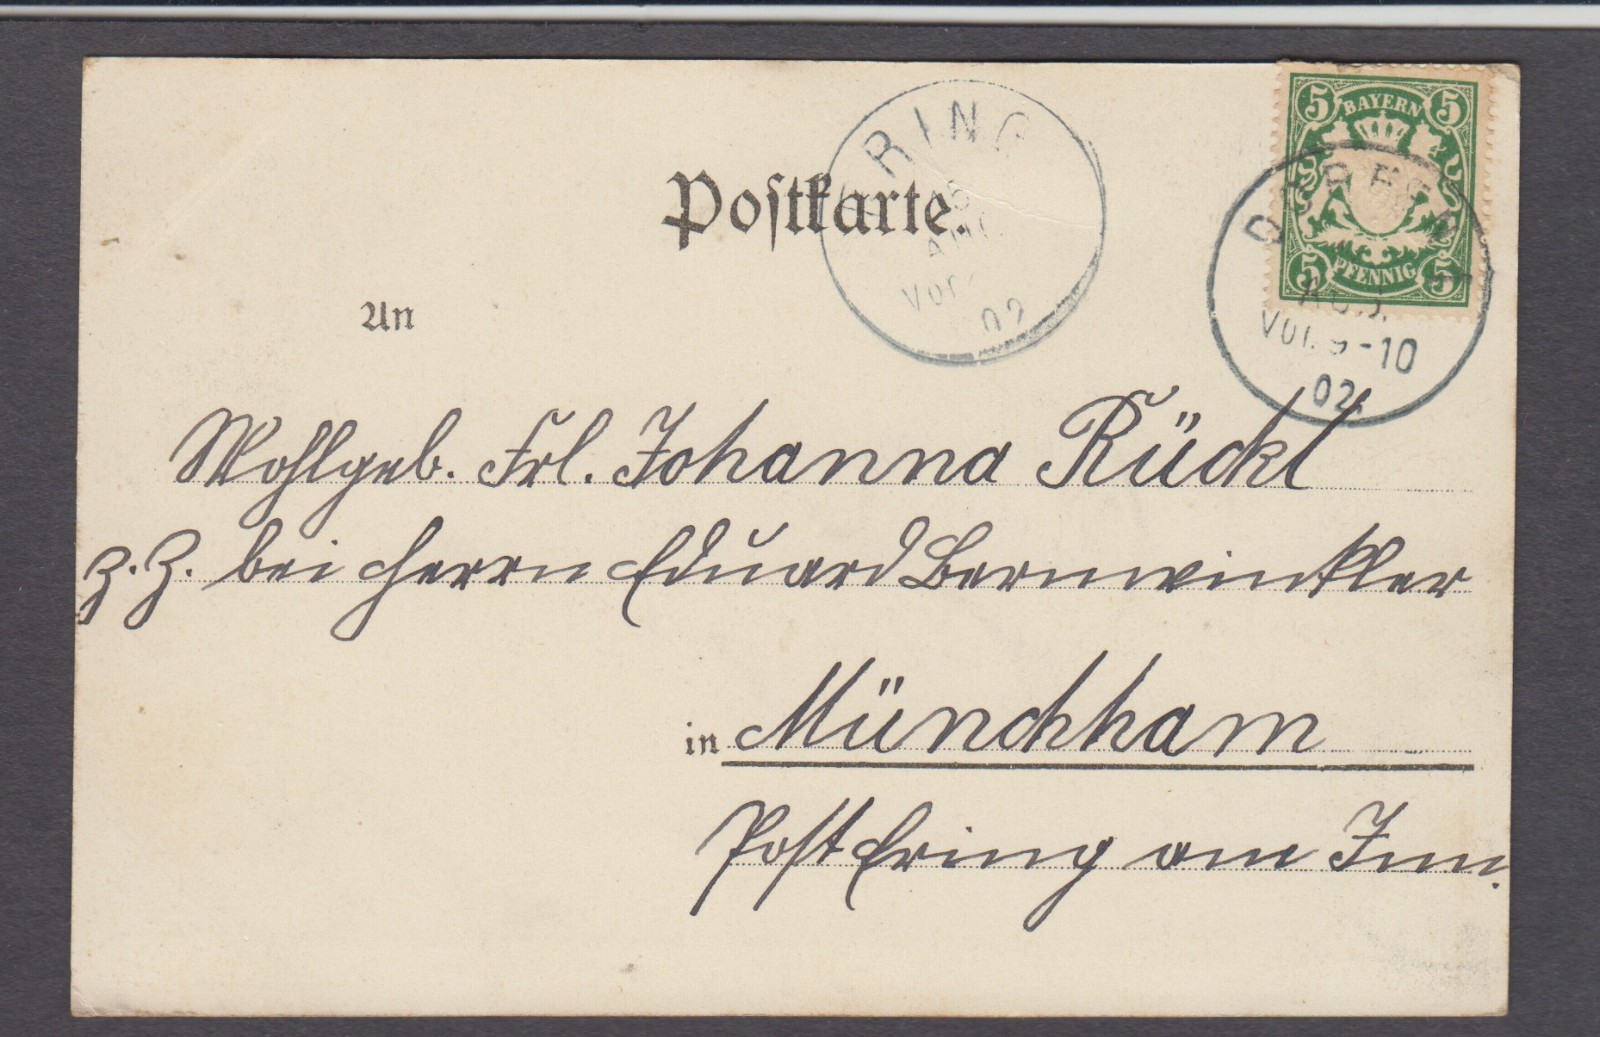 5 BAYERN 5
5 PFENNIG 5
ERING
02
Vor. 9-10
02.
Postkarte.
An
Wohlgeb. Frl. Johanna Rückl
z. Z. bei Herrn Eduard Bernwinkler
in Münchham
Post Ering am Inn.